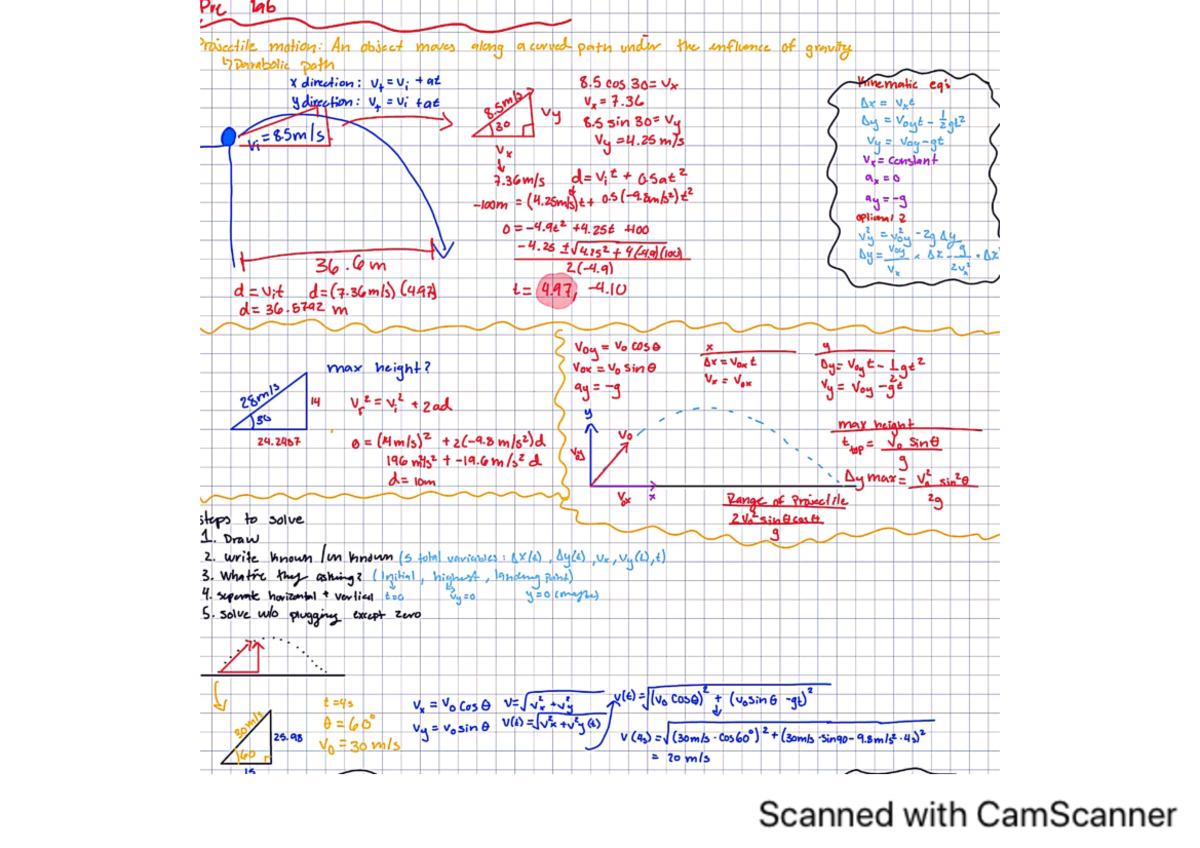 Pre lab
Projectile motion: An object moves along a curved path under the influence of gravity
↳Parabolic path
x direction: Vf = Vi + at
y direction: Vf = Vi + at
Vi = 8.5m/s
36.6m
d = Vit d = (7.36m/s)(4.97)
d = 36.5792 m
8.5m/s
30
Vy
Vx
↓
7.36m/s
8.5 cos 30 = Vx
Vx = 7.36
8.5 sin 30 = Vy
Vy = 4.25 m/s
d = Vit + 0.5at²
-100m = (4.25m/s)t + 0.5(-9.8m/s²)t²
0 = -4.9t² + 4.25t + 100
-4.25 ±√4.25² + 4(4.9)(100)
2(-4.9)
t = 4.97, -4.10
Kinematic eq's
Δx = Vxt
Δy = Voyt - ½gt²
Vy = Voy - gt
Vx = constant
ax = 0
ay = -g
optional 2
Vy² = Voy² - 2gΔy
Δy = Voy/Vx · Δx - g/2Vx² · Δx²
max height?
28m/s
30
14
24.2487
Vf² = Vi² + 2ad
0 = (14m/s)² + 2(-9.8 m/s²)d
196 m²/s² + -19.6m/s² d
d = 10m
Voy = Vo cosθ
Vox = Vo sinθ
ay = -g
x
Δx = Voxt
Vx = Vox
y
Δy = Voyt - ½gt²
Vy = Voy - gt
y
Vo
Voy
Vox
x
max height
ttop = Vo sinθ/g
Δy max = Vo² sin²θ/2g
Range of Projectile
2Vo² sinθcosθ
g
steps to solve
1. Draw
2. write known /un known (5 total variables: Δx(t), Δy(t), Vx, Vy(t), t)
3. What're they asking? (initial, highest, landing point)
4. separate horizontal + vertical t=0 Vy=0 y=0 (maybe)
5. solve w/o plugging except zero
30m/s
60
25.98
15
t = 4s
θ = 60°
Vo = 30 m/s
Vx = Vo cosθ
Vy = Vo sinθ
V = √Vx² + Vy²
V(t) = √V²x + V²y(t)
V(t) = √(Vo cosθ)² + (Vo sinθ - gt)²
V(4s) = √(30m/s · cos60°)² + (30m/s · sin90 - 9.8m/s² · 4s)²
= 20 m/s
Scanned with CamScanner